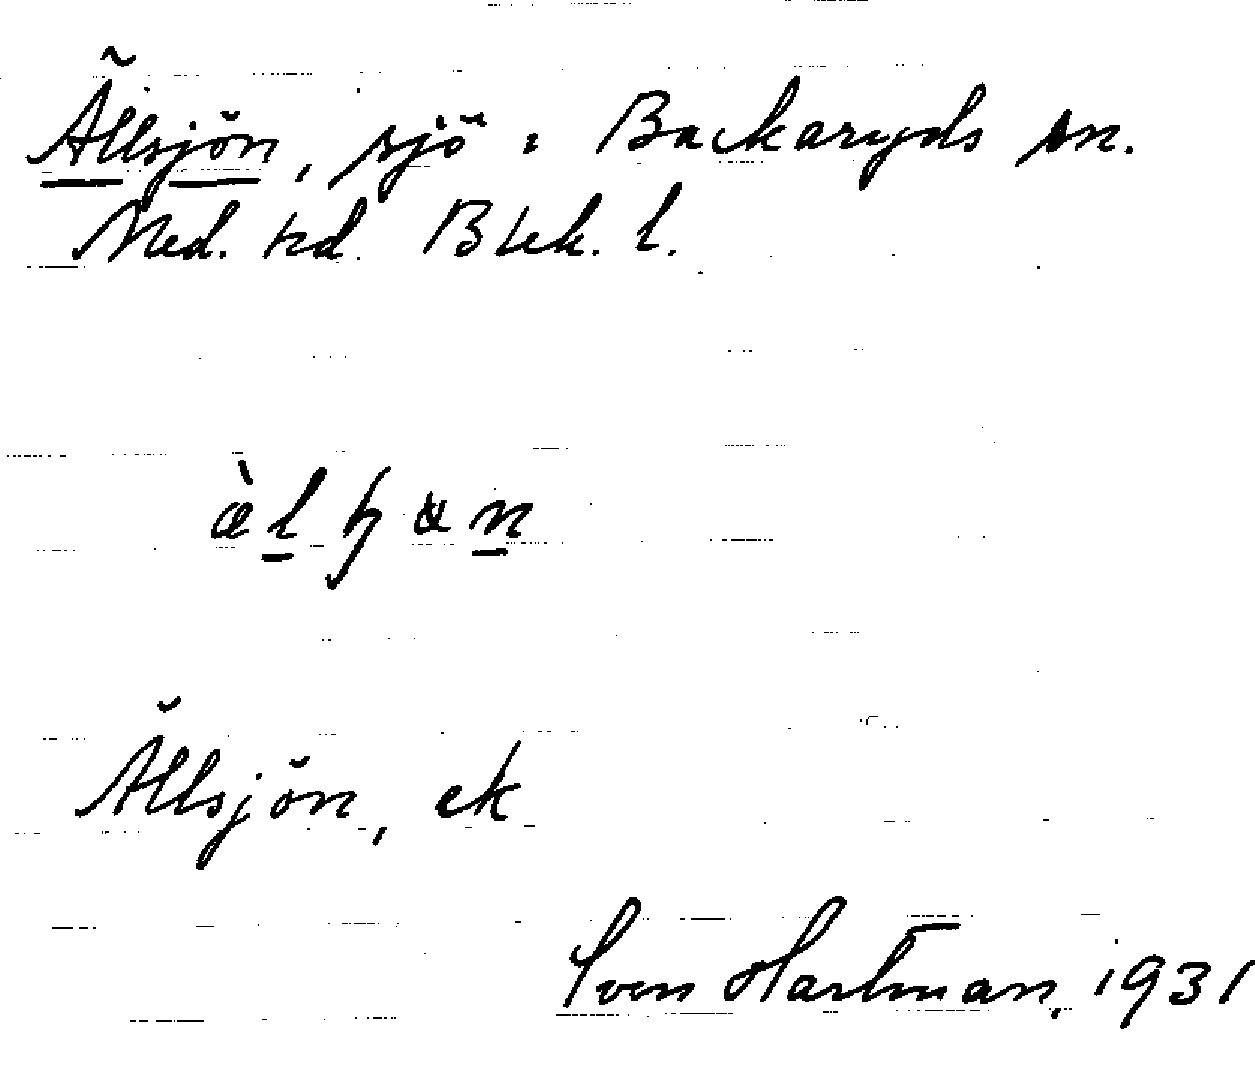 Ällsjön, sjö i Backaryds sn.
Med. hd. Blek. l.
Ällsjön, ek
Sven Hartman, 1931